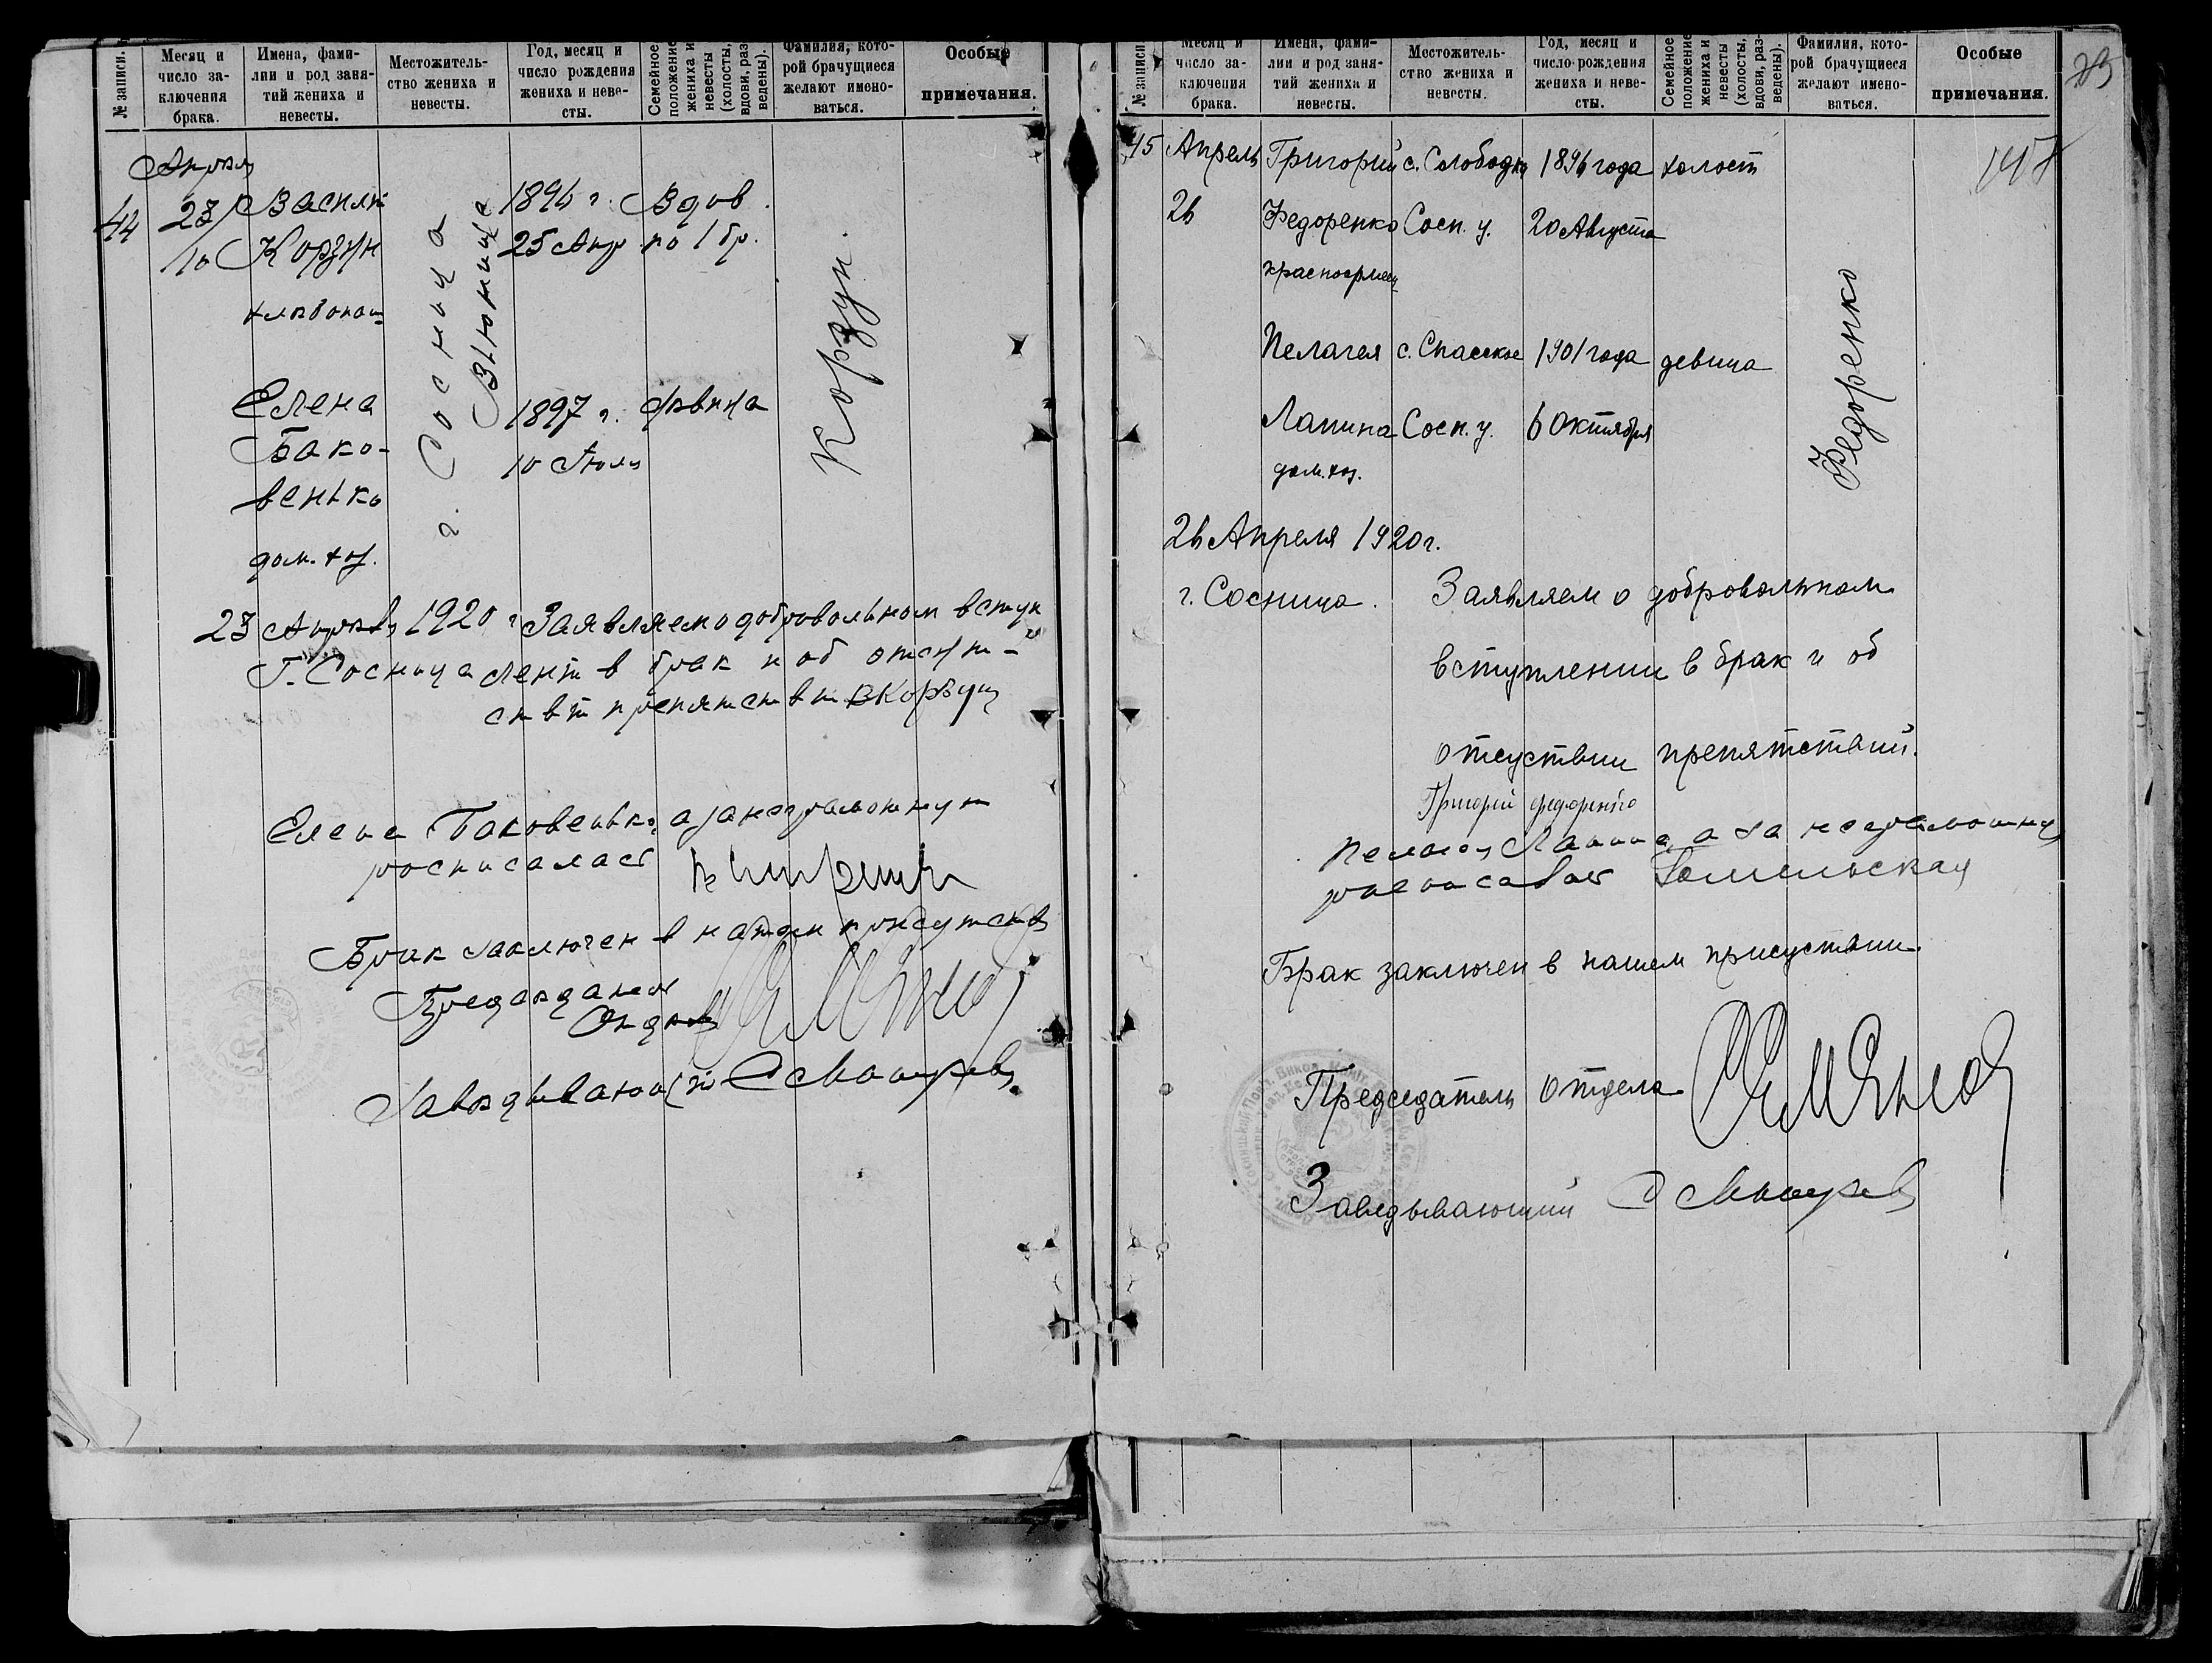 № записи.
Месяц и число заключения брака.
Имена, фамилии и род занятий жениха и невесты.
Местожительство жениха и невесты.
Год, месяц и число рождения жениха и невесты.
Семейное положение жениха и невесты (холосты, вдовы, разведены).
Фамилия, которой брачущиеся желают именоваться.
Особые примечания.
Апрель
44
23/10
Василий
Корзун
хлебопаш
г. Сосница
Вьюнище
1894 г.
25 Апр
Вдов
по 1 бр.
Корзун.
Елена
Бако-
венько
дом. хоз.
1897 г.
10 Июля
девица
23 Апреля 1920 г Заявляем о добровольном вступ
Г. Сосница лении в брак и об отсут-
ствии препятствий ВКорзун
Елена Баковенько, а за неграмотную
росписалась
Брак заключен в нашем присутствии
Председатель
Отдела
Заведывающий
№ записи.
Месяц и число заключения брака.
Имена, фамилии и род занятий жениха и невесты.
Местожительство жениха и невесты.
Год, месяц и число рождения жениха и невесты.
Семейное положение жениха и невесты (холосты, вдовы, разведены).
Фамилия, которой брачущиеся желают именоваться.
Особые примечания.
45 Апрель Григорий с. Слободка 1896 года холост
26 Федоренко Сосн. у. 20 Августа
красноармеец
Пелагея с. Спасское 1901 года девица
Лапина Сосн. у. 6 Октября
дом. хоз.
Федоренко
26 Апреля 1920 г.
г. Сосница. Заявляем о добровольном
вступлении в брак и об
отсуствии препятствий.
Григорий федоренко
Пелагея Лапина, а за неграмотную
росписалась
Брак заключен в нашем присуствии.
Председатель Отдела
Заведывающий